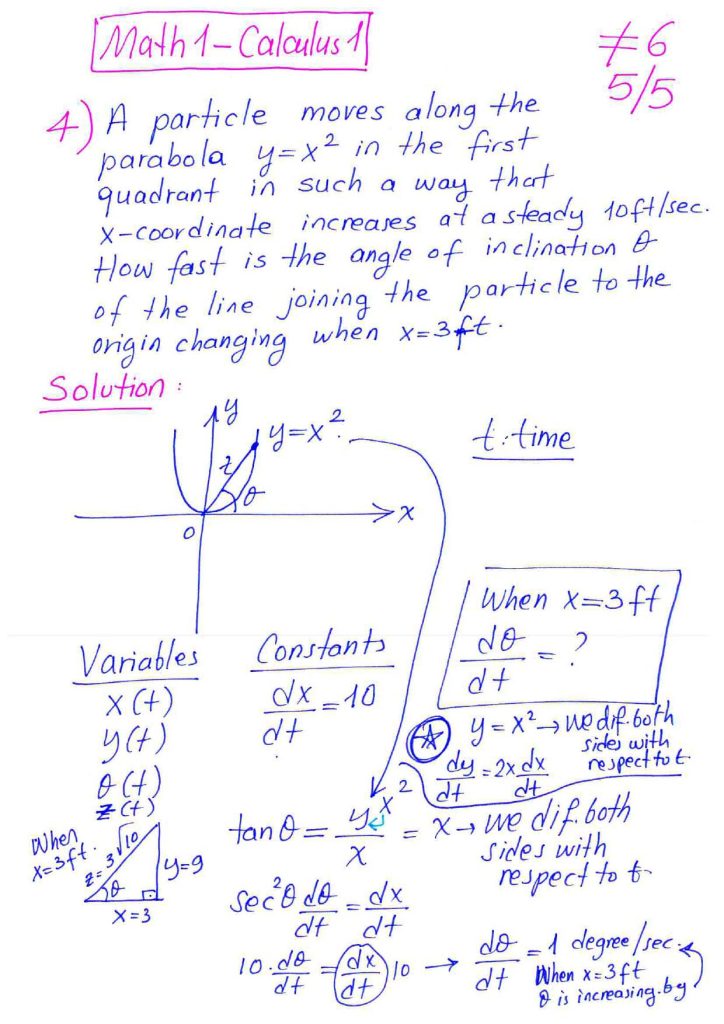 Math 1 - Calculus 1
≠6
5/5
4) A particle moves along the
parabola y=x² in the first
quadrant in such a way that
x-coordinate increases at a steady 10ft/sec.
How fast is the angle of inclination θ
of the line joining the particle to the
origin changing when x=3ft.
Solution:
y
y=x²
t:time
z
θ
x
0
When x=3ft
dθ/dt = ?
Variables
Constants
x(t)
dx/dt = 10
y(t)
θ(t)
z(t)
y=x² → we dif. both
sides with
respect to t
dy/dt = 2x dx/dt
When
x=3ft.
z=3√10
y=9
θ
x=3
tanθ = y/x = x → we dif. both
x²
sides with
respect to t
sec²θ dθ/dt = dx/dt
10. dθ/dt = dx/dt 10 → dθ/dt = 1 degree/sec.
When x=3ft
θ is increasing by